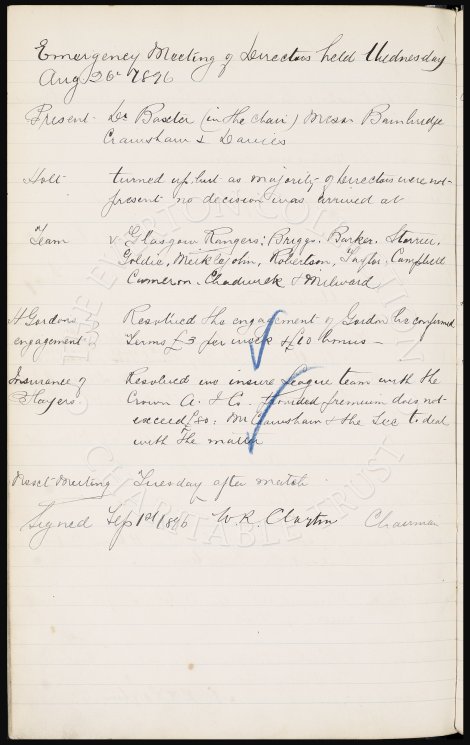 Emergency Meeting of Directors held Wednesday
Aug 26th 1896
Present. Dr Baxter (in the chair) Messrs Bainbridge
Crawshaw & Davies
Holt turned up but as majority of Directors were not
present no decision was arrived at
Team v Glasgow Rangers: Briggs. Barker. Storrier.
Goldie, Meiklejohn, Robertson, Taylor, Campbell
Cameron. Chadwick & Milward
Gordons Resolved the engagement of Gordon be confirmed
engagement. Terms £3 per week & £10 bonus —
Insurance of Resolved we insure League team with the
Players. Crown A. I Co. provided premium does not
exceed £80: Mr Crawshaw & the Sec to deal
with the matter
Next Meeting Tuesday after match.
Signed Sep 1st 1896 W. R. Clayton Chairman
THE EVERTON COLLECTION
CHARITABLE TRUST